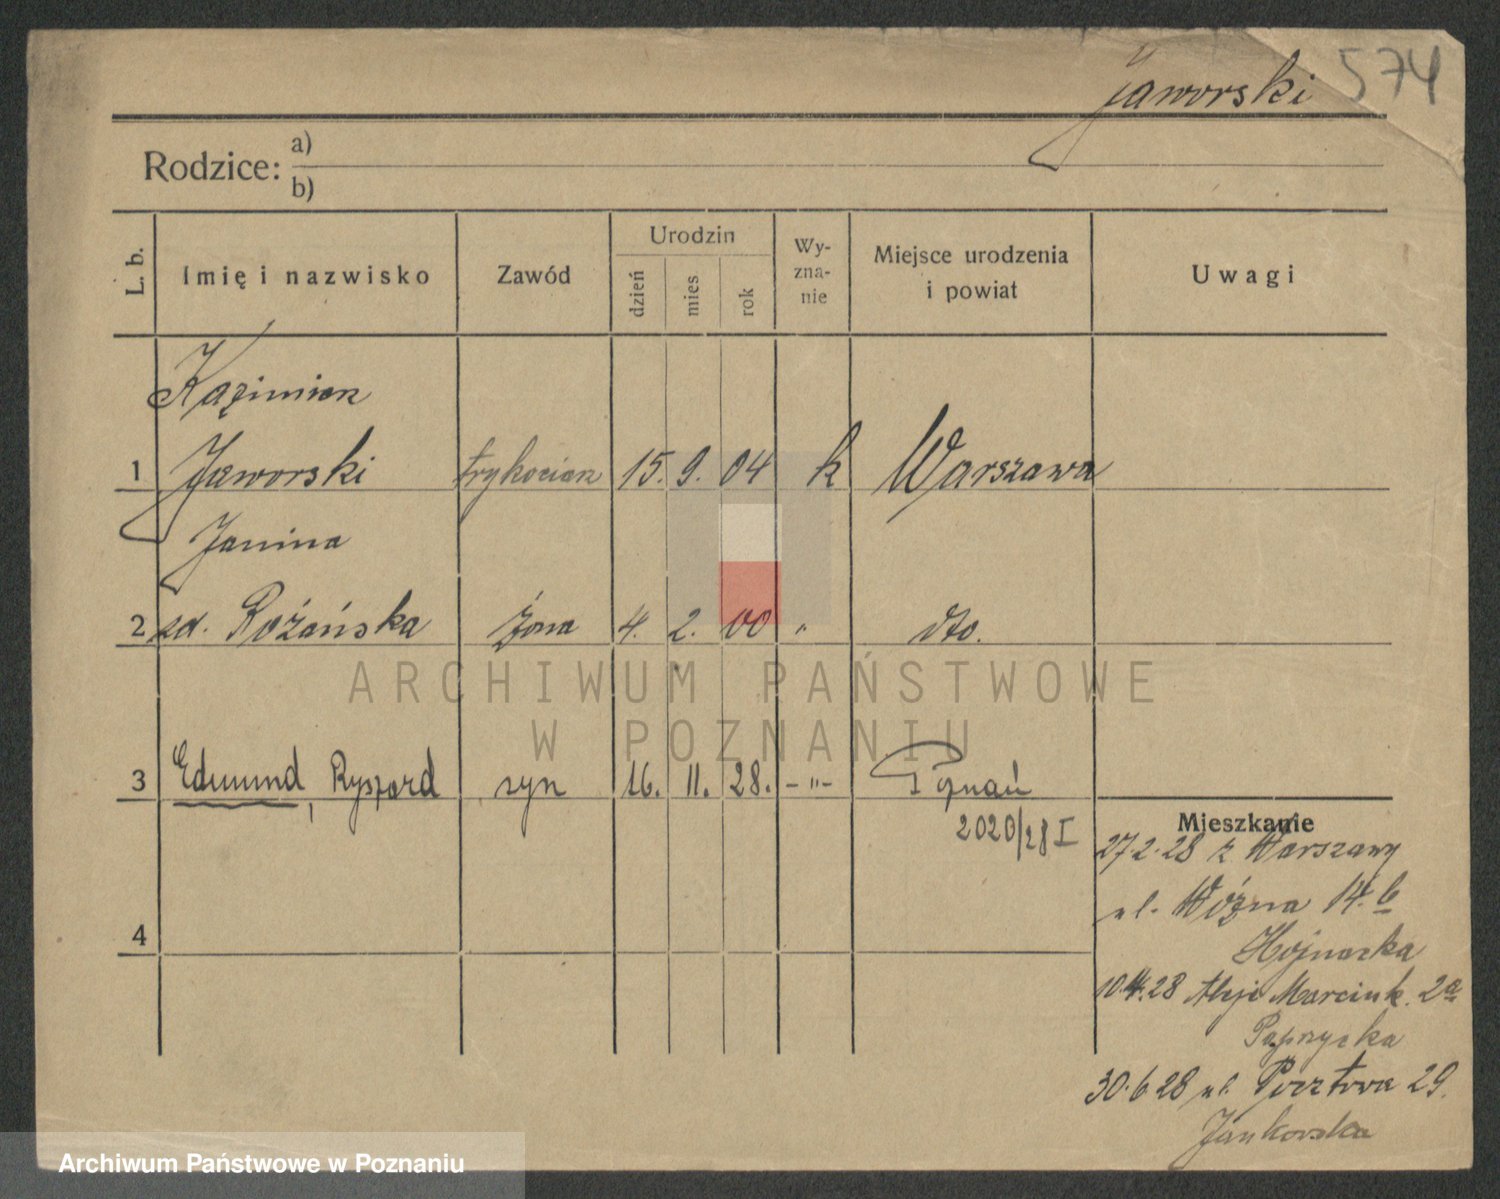 Jaworski 574
Rodzice: a)
b)
L. b. Imię i nazwisko Zawód Urodzin dzień mies rok Wy-zna-nie Miejsce urodzenia i powiat Uwagi
Kazimierz
1 Jaworski trykociarz 15. 9. 04 k Warszawa
Janina
2 zd. Różańska żona 4. 2. 00 " dto.
ARCHIWUM PAŃSTWOWE
W POZNANIU
3 Edmund, Ryszard syn 16. 11. 28. -"- Poznań
2020/28 I
Mieszkanie
27.2.28 z Warszawy
ul. Woźna 14.b
4
10.4.28 Aleje Marcink. 2a
30.6.28 ul. Pocztowa 29.
Jankowska
Archiwum Państwowe w Poznaniu